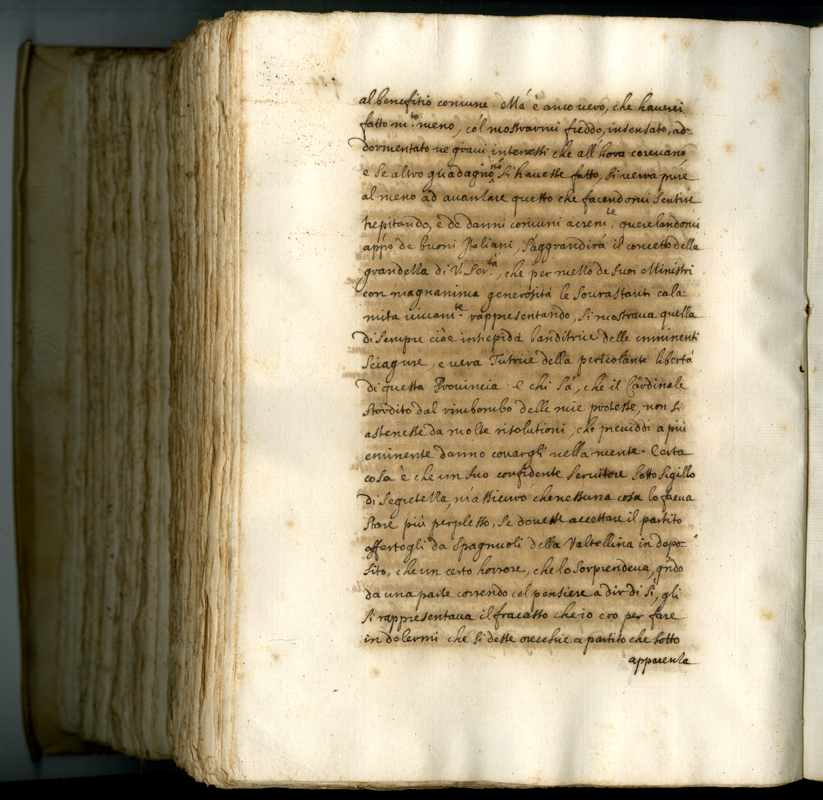 al benefitio comune. Mà è anco vero, che haverei
fatto m.to meno, col mostrarmi freddo, insensato, ad-
dormentato ne gravi interessi che all'hora correvano
e se altro guadagno no si havesse fatto, si verrà pure
al meno ad avanzare questo che facendomi sentire
strepitando, e de danni comuni acrem.te querelandomi
app.o de buoni Italiani, s'aggrandirà il concetto della
grandezza di V. Ser.tà, che per mezzo de suoi Ministri
con magnanima generosità le sourastanti cala
mità vivam.te rappresentando, si mostrava quella
di sempre cioè intrepida banditrice delle imminenti
sciagure, e vera Tutrice della pericolante libertà
di questa Provincia. e chi sà, che il Cardinale
stordito dal rimbombo delle mie proteste, non si
astenesse da molte risolutioni, che previddi a più
eminente danno covargli nella mente. Certa
cosa è che un suo confidente servitore sotto sigillo
di segretezza, m'assicurò che nessuna cosa lo faceva
stare più perplesso, se dovesse accettare il partito
offertogli da Spagnuoli della Valtellina in depo-
sito, che un certo horrore, che lo sorprendeva, qndo
da una parte correndo col pensiere a dir di sì, gli
si rappresentava il fracasso che io ero per fare
in dolermi che si desse orecchie a partito che sotto
apparenza